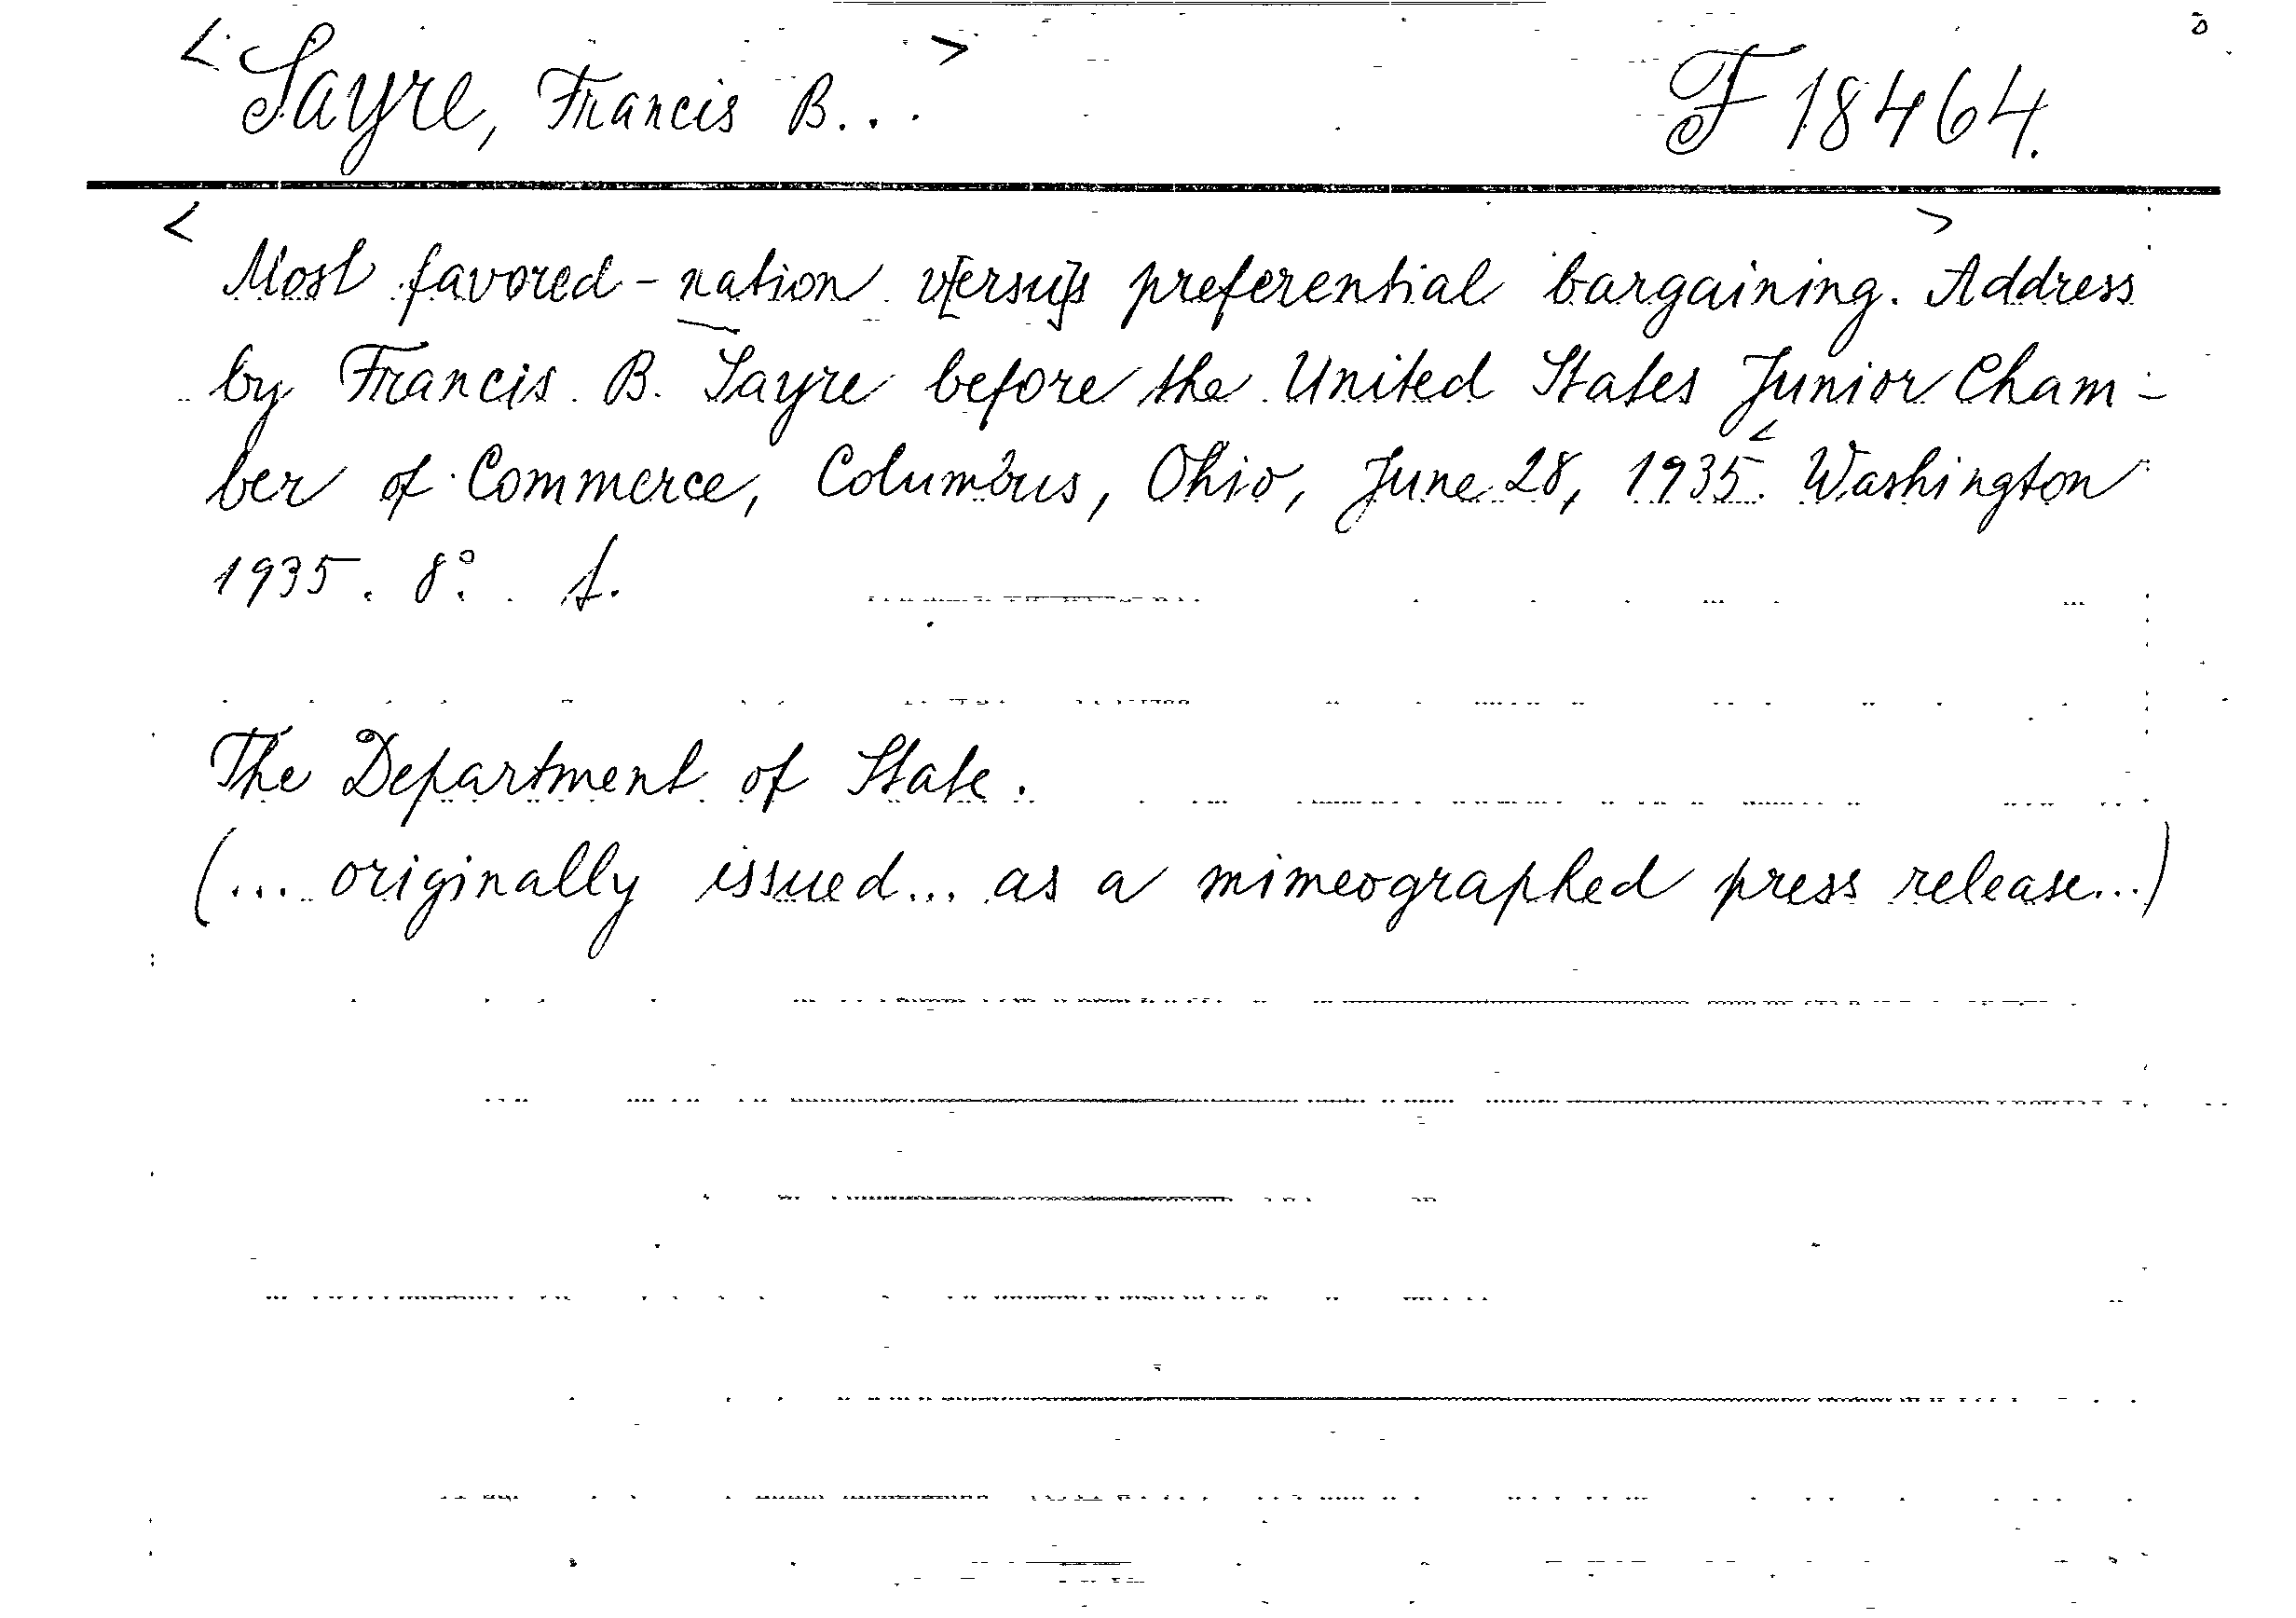 <Sayre, Francis B...> F 18464.
<Most favored-nation v[ersu]s preferential bargaining.> Address
by Francis B. Sayre before the United States Junior Cham-
ber of Commerce, Columbus, Ohio, June 28, 1935.< Washington
1935. 8°.
The Department of State.
(... originally issued... as a mimeographed press release...)